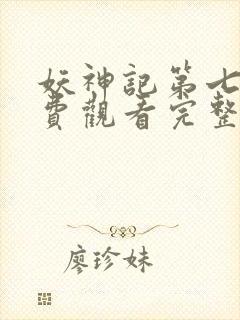 妖神記第七
費觀看完整
廖珍妹